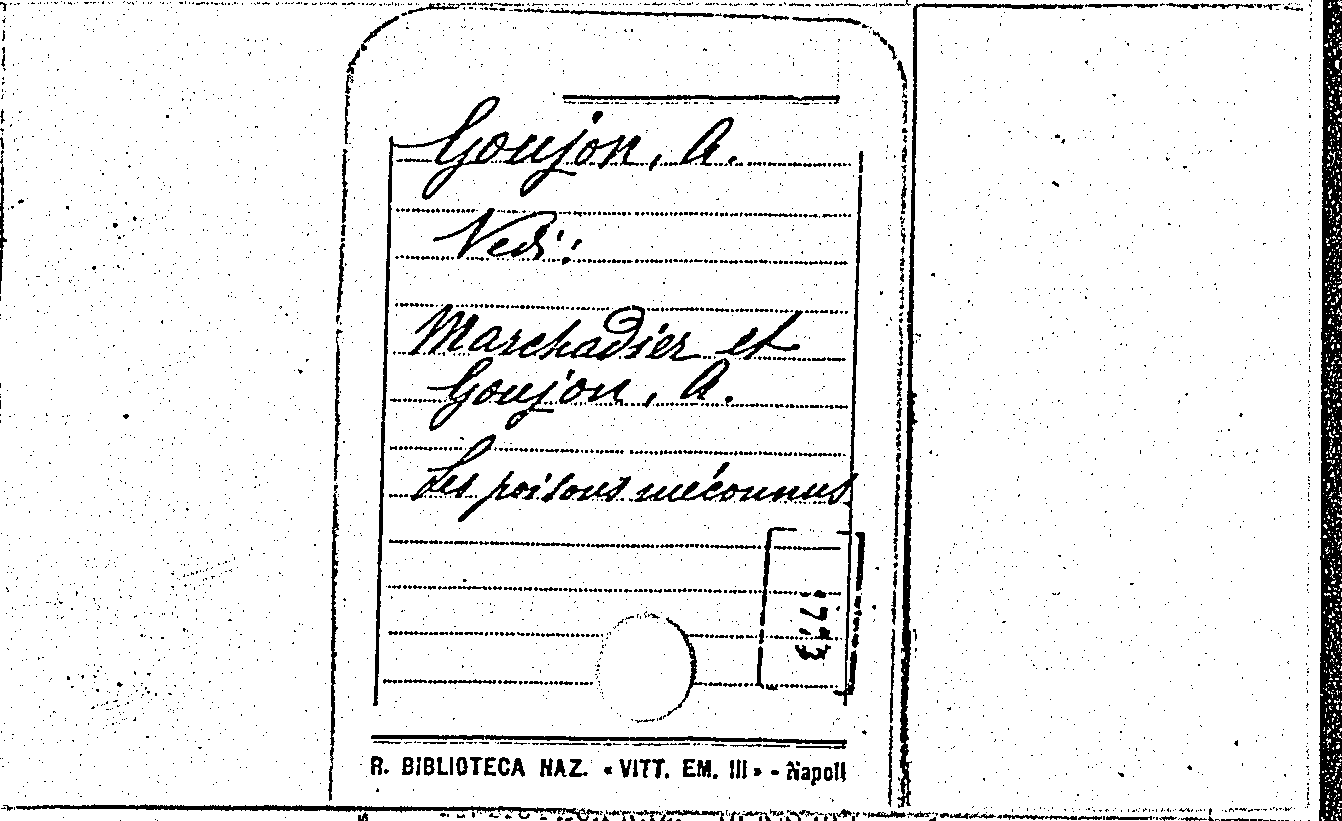 Goujon, A.
Vedi:
Marchadier et
Goujon, A.
Les poisons méconnus
R. BIBLIOTECA NAZ. « VITT. EM. III » - Napoli